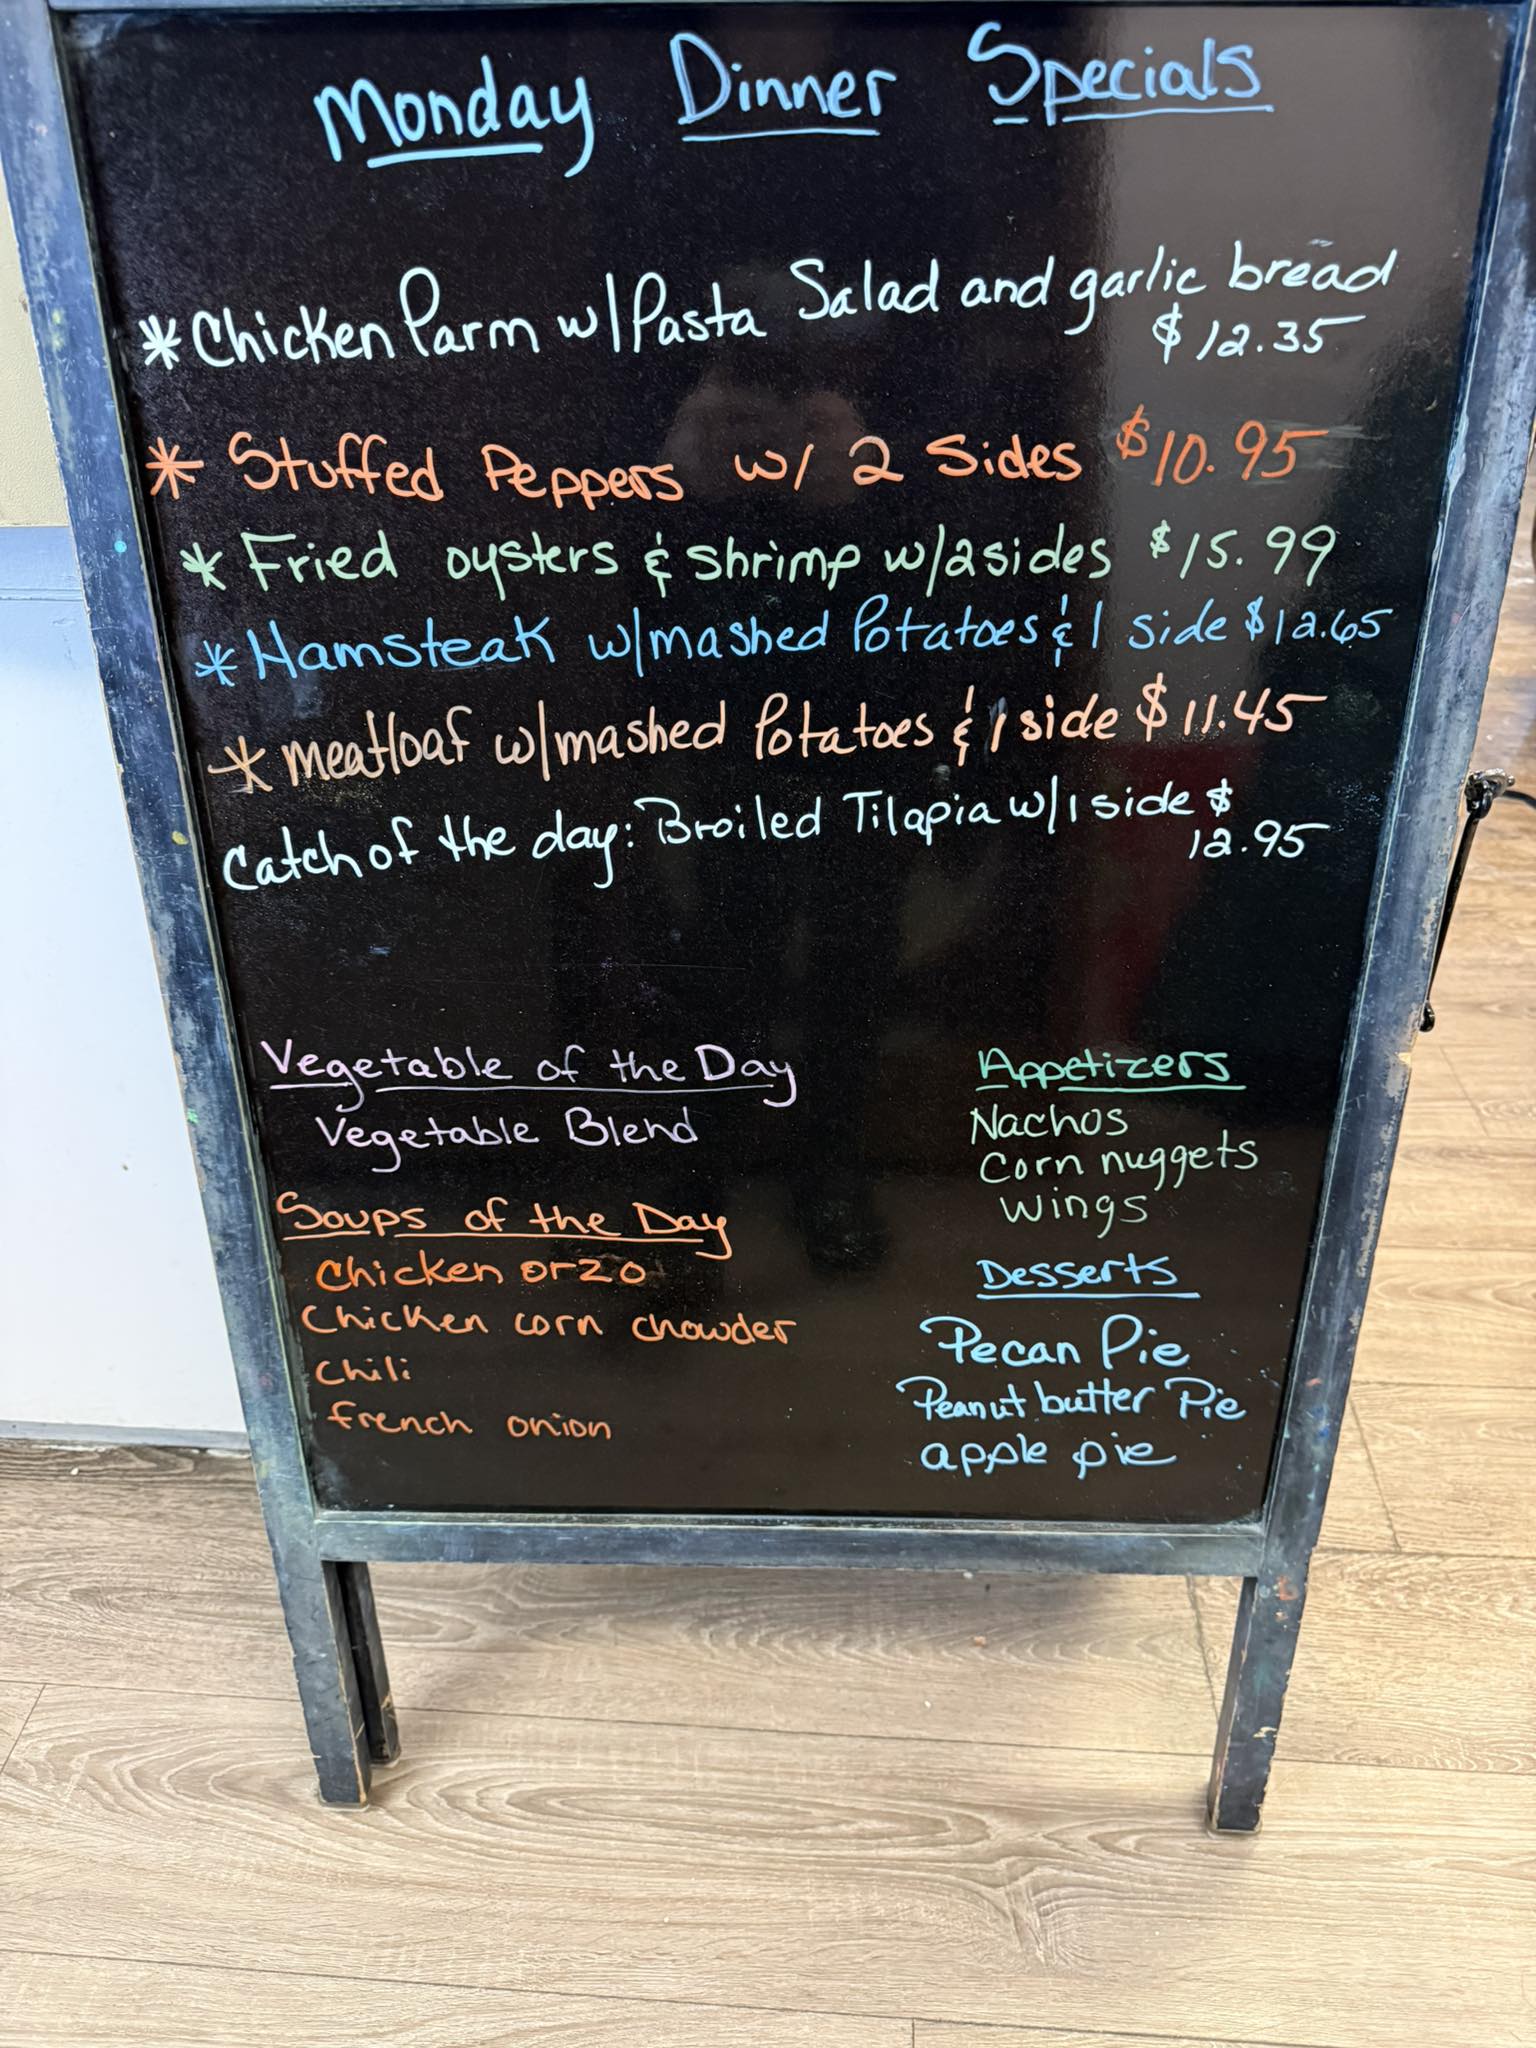 Monday Dinner Specials
*Chicken Parm w/Pasta Salad and garlic bread
$12.35
* Stuffed Peppers w/ 2 Sides $10.95
* Fried oysters & shrimp w/2 sides $15.99
* Hamsteak w/mashed Potatoes & 1 side $12.65
* meatloaf w/mashed Potatoes & 1 side $11.45
Catch of the day: Broiled Tilapia w/1 side $
12.95
Vegetable of the Day
Vegetable Blend
Soups of the Day
Chicken orzo
Chicken corn chowder
Chili
french onion
Appetizers
Nachos
Corn nuggets
Wings
Desserts
Pecan Pie
Peanut butter Pie
apple pie